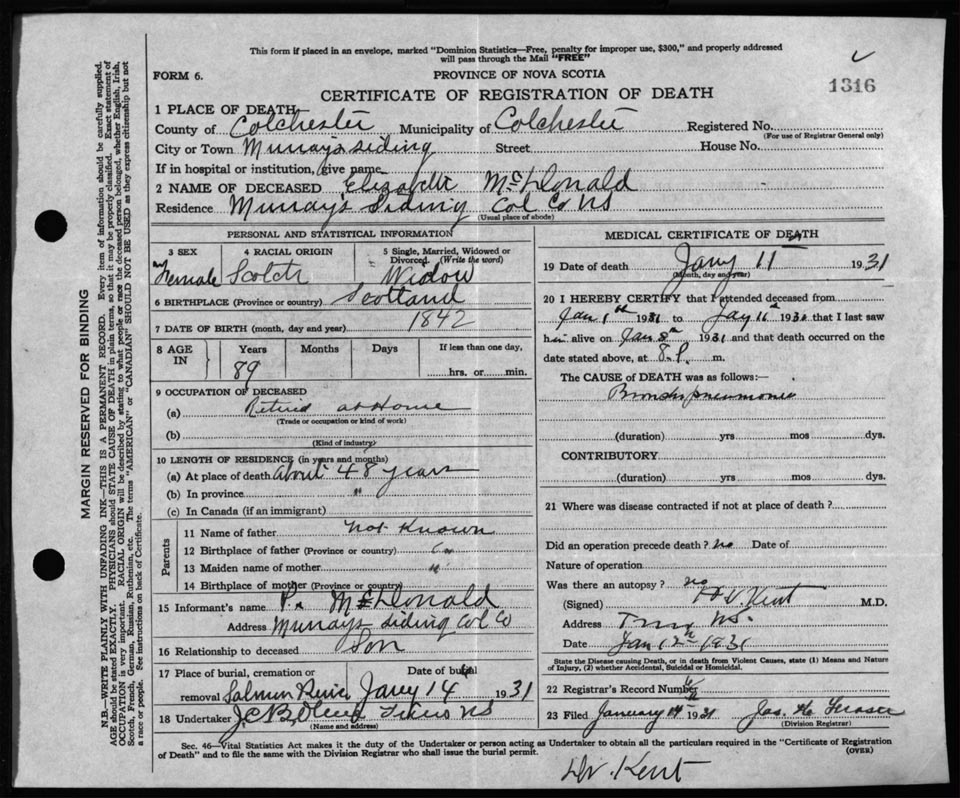 This form if placed in an envelope, marked "Dominion Statistics—Free, penalty for improper use, $300," and properly addressed
will pass through the Mail "FREE"
FORM 6.
PROVINCE OF NOVA SCOTIA
1316
CERTIFICATE OF REGISTRATION OF DEATH
1 PLACE OF DEATH
County of Colchester Municipality of Colchester Registered No.
(For use of Registrar General only)
City or Town Murray's siding Street House No.
If in hospital or institution, give name
2 NAME OF DECEASED Elizabeth McDonald
Residence Murray's Siding Col Co NS
(Usual place of abode)
PERSONAL AND STATISTICAL INFORMATION
3 SEX 4 RACIAL ORIGIN 5 Single, Married, Widowed or
Divorced. (Write the word)
Female Scotch Widow
6 BIRTHPLACE (Province or country) Scotland
7 DATE OF BIRTH (month, day and year) 1842
8 AGE IN Years Months Days If less than one day,
89 hrs. or min.
9 OCCUPATION OF DECEASED
(a) Retired at Home
(Trade or occupation or kind of work)
(b)
(Kind of industry)
10 LENGTH OF RESIDENCE (in years and months)
(a) At place of death about 48 years
(b) In province "
(c) In Canada (if an immigrant)
Parents
11 Name of father not Known
12 Birthplace of father (Province or country) "
13 Maiden name of mother "
14 Birthplace of mother (Province or country)
15 Informant's name P. McDonald
Address Murrays siding Col Co
16 Relationship to deceased Son
17 Place of burial, cremation or Date of burial
removal Salmon River Jany 14 1931
18 Undertaker NS
(Name and address)
MEDICAL CERTIFICATE OF DEATH
19 Date of death Jany 11 1931
(Month, day and year)
20 I HEREBY CERTIFY that I attended deceased from
Jan 1st 1931 to 11th 193 that I last saw
h alive on Jan 8th 1931 and that death occurred on the
date stated above, at 8. P. m.
The CAUSE of DEATH was as follows:—
Bronchopneumonia
(duration) yrs. mos dys.
CONTRIBUTORY
(duration) yrs. mos dys.
21 Where was disease contracted if not at place of death?
Did an operation precede death? no Date of
Nature of operation
Was there an autopsy? no
(Signed) Kent M.D.
Address Truro NS.
Date Jan 12th 1931
State the Disease causing Death, or in death from Violent Causes, state (1) Means and Nature
of Injury, (2) whether Accidental, Suicidal or Homicidal.
22 Registrar's Record Number
23 Filed January 14 1931 Jas. Fraser
(Division Registrar)
Sec. 46—Vital Statistics Act makes it the duty of the Undertaker or person acting as Undertaker to obtain all the particulars required in the "Certificate of Registration
of Death" and to file the same with the Division Registrar who shall issue the burial permit. (OVER)
Dr. Kent
MARGIN RESERVED FOR BINDING
N.B.—WRITE PLAINLY WITH UNFADING INK—THIS IS A PERMANENT RECORD. Every item of information should be carefully supplied.
AGE should be stated EXACTLY. PHYSICIANS should STATE CAUSE OF DEATH in plain terms, so that it may be properly classified. Exact statement of
OCCUPATION is very important. RACIAL ORIGIN will be described by stating to what people or race the deceased person belonged, whether English, Irish,
Scotch, French, German, Russian, Ruthenian, etc. The terms "AMERICAN" or "CANADIAN" SHOULD NOT BE USED as they express citizenship but not
a race or people. See instructions on back of Certificate.